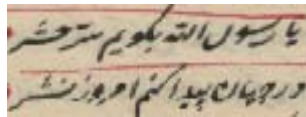 یا رسول الله بگویم سر حشر
در جهان پیدا کنم امروز نشر